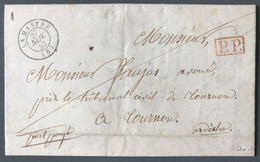 LAMASTRE
NOV.
(6)
Monsieur,
P.P.
Monsieur Faujas avoué
près le tribunal civil de Tournon
à Tournon
port payé
ardèche